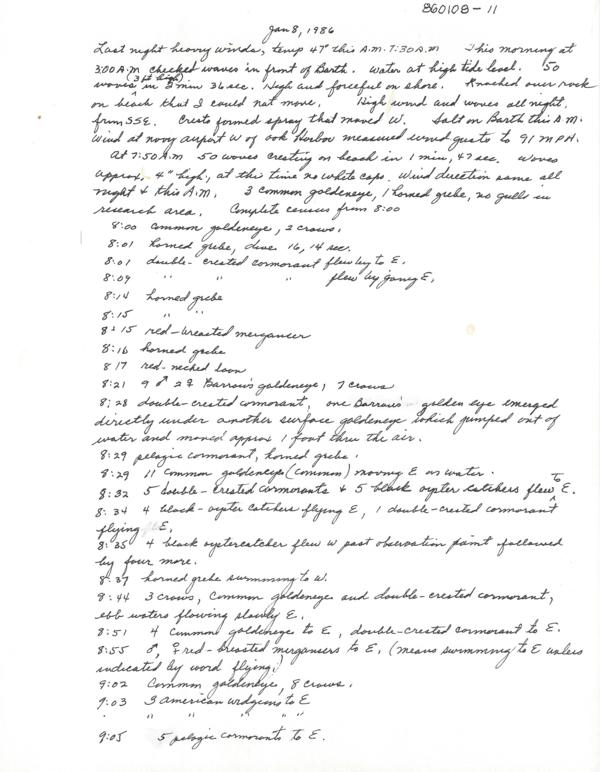 860108-11
Jan 8, 1986
Last night heavy winds, temp 47° this A.M. 7:30 A.M This morning at
3:00 A.M checked waves in front of Barth. Water at high tide level. 50
waves (3 ft high) in 3 min 36 sec. High and forceful on shore. Knocked over rock
on beach that I could not move. High wind and waves all night,
from SSE. Crests formed spray that moved W. Salt on Barth this A.M.
Wind at navy airport W of Oak Harbor measured wind gusts to 91 MPH.
At 7:50 A.M 50 waves cresting on beach in 1 min, 47 sec. Waves
approx. 4" high, at the time no white caps. Wind direction same all
night & this A.M. 3 common goldeneye, 1 horned grebe, no gulls in
research area. Complete census from 8:00
8:00 Common goldeneye, 2 crows.
8:01 horned grebe, dive 16, 14 sec.
8:01 double-crested cormorant flew by to E.
8:09 " " " flew by going E.
8:14 horned grebe
8:15 " "
8:15 red-breasted merganser
8:16 horned grebe
8 17 red-necked loon
8:21 9 ♂ 2 ♀ Barrow's goldeneye, 7 crows
8:28 double-crested cormorant, one Barrow's golden eye emerged
directly under another surface goldeneye which jumped out of
water and moved approx 1 foot thru the air.
8:29 pelagic cormorant, horned grebe.
8:29 11 Common goldeneye (common) moving E on water.
8:32 5 double-crested cormorants & 5 black oyster catchers flew to E.
8:34 4 black-oyster catchers flying E, 1 double-crested cormorant
flying E.
8:35 4 black oystercatcher flew W past observation point followed
by four more.
8:37 horned grebe swimming to W.
8:44 3 crows, Common goldeneye and double-crested cormorant,
ebb waters flowing slowly E.
8:51 4 common goldeneye to E, double-crested cormorant to E.
8:55 ♂, ♀ red-breasted mergansers to E. (means swimming to E unless
indicated by word flying.)
9:02 Common goldeneye, 8 crows.
9:03 3 american widgeons to E
" " " " "
9:05 5 pelagic cormorants to E.